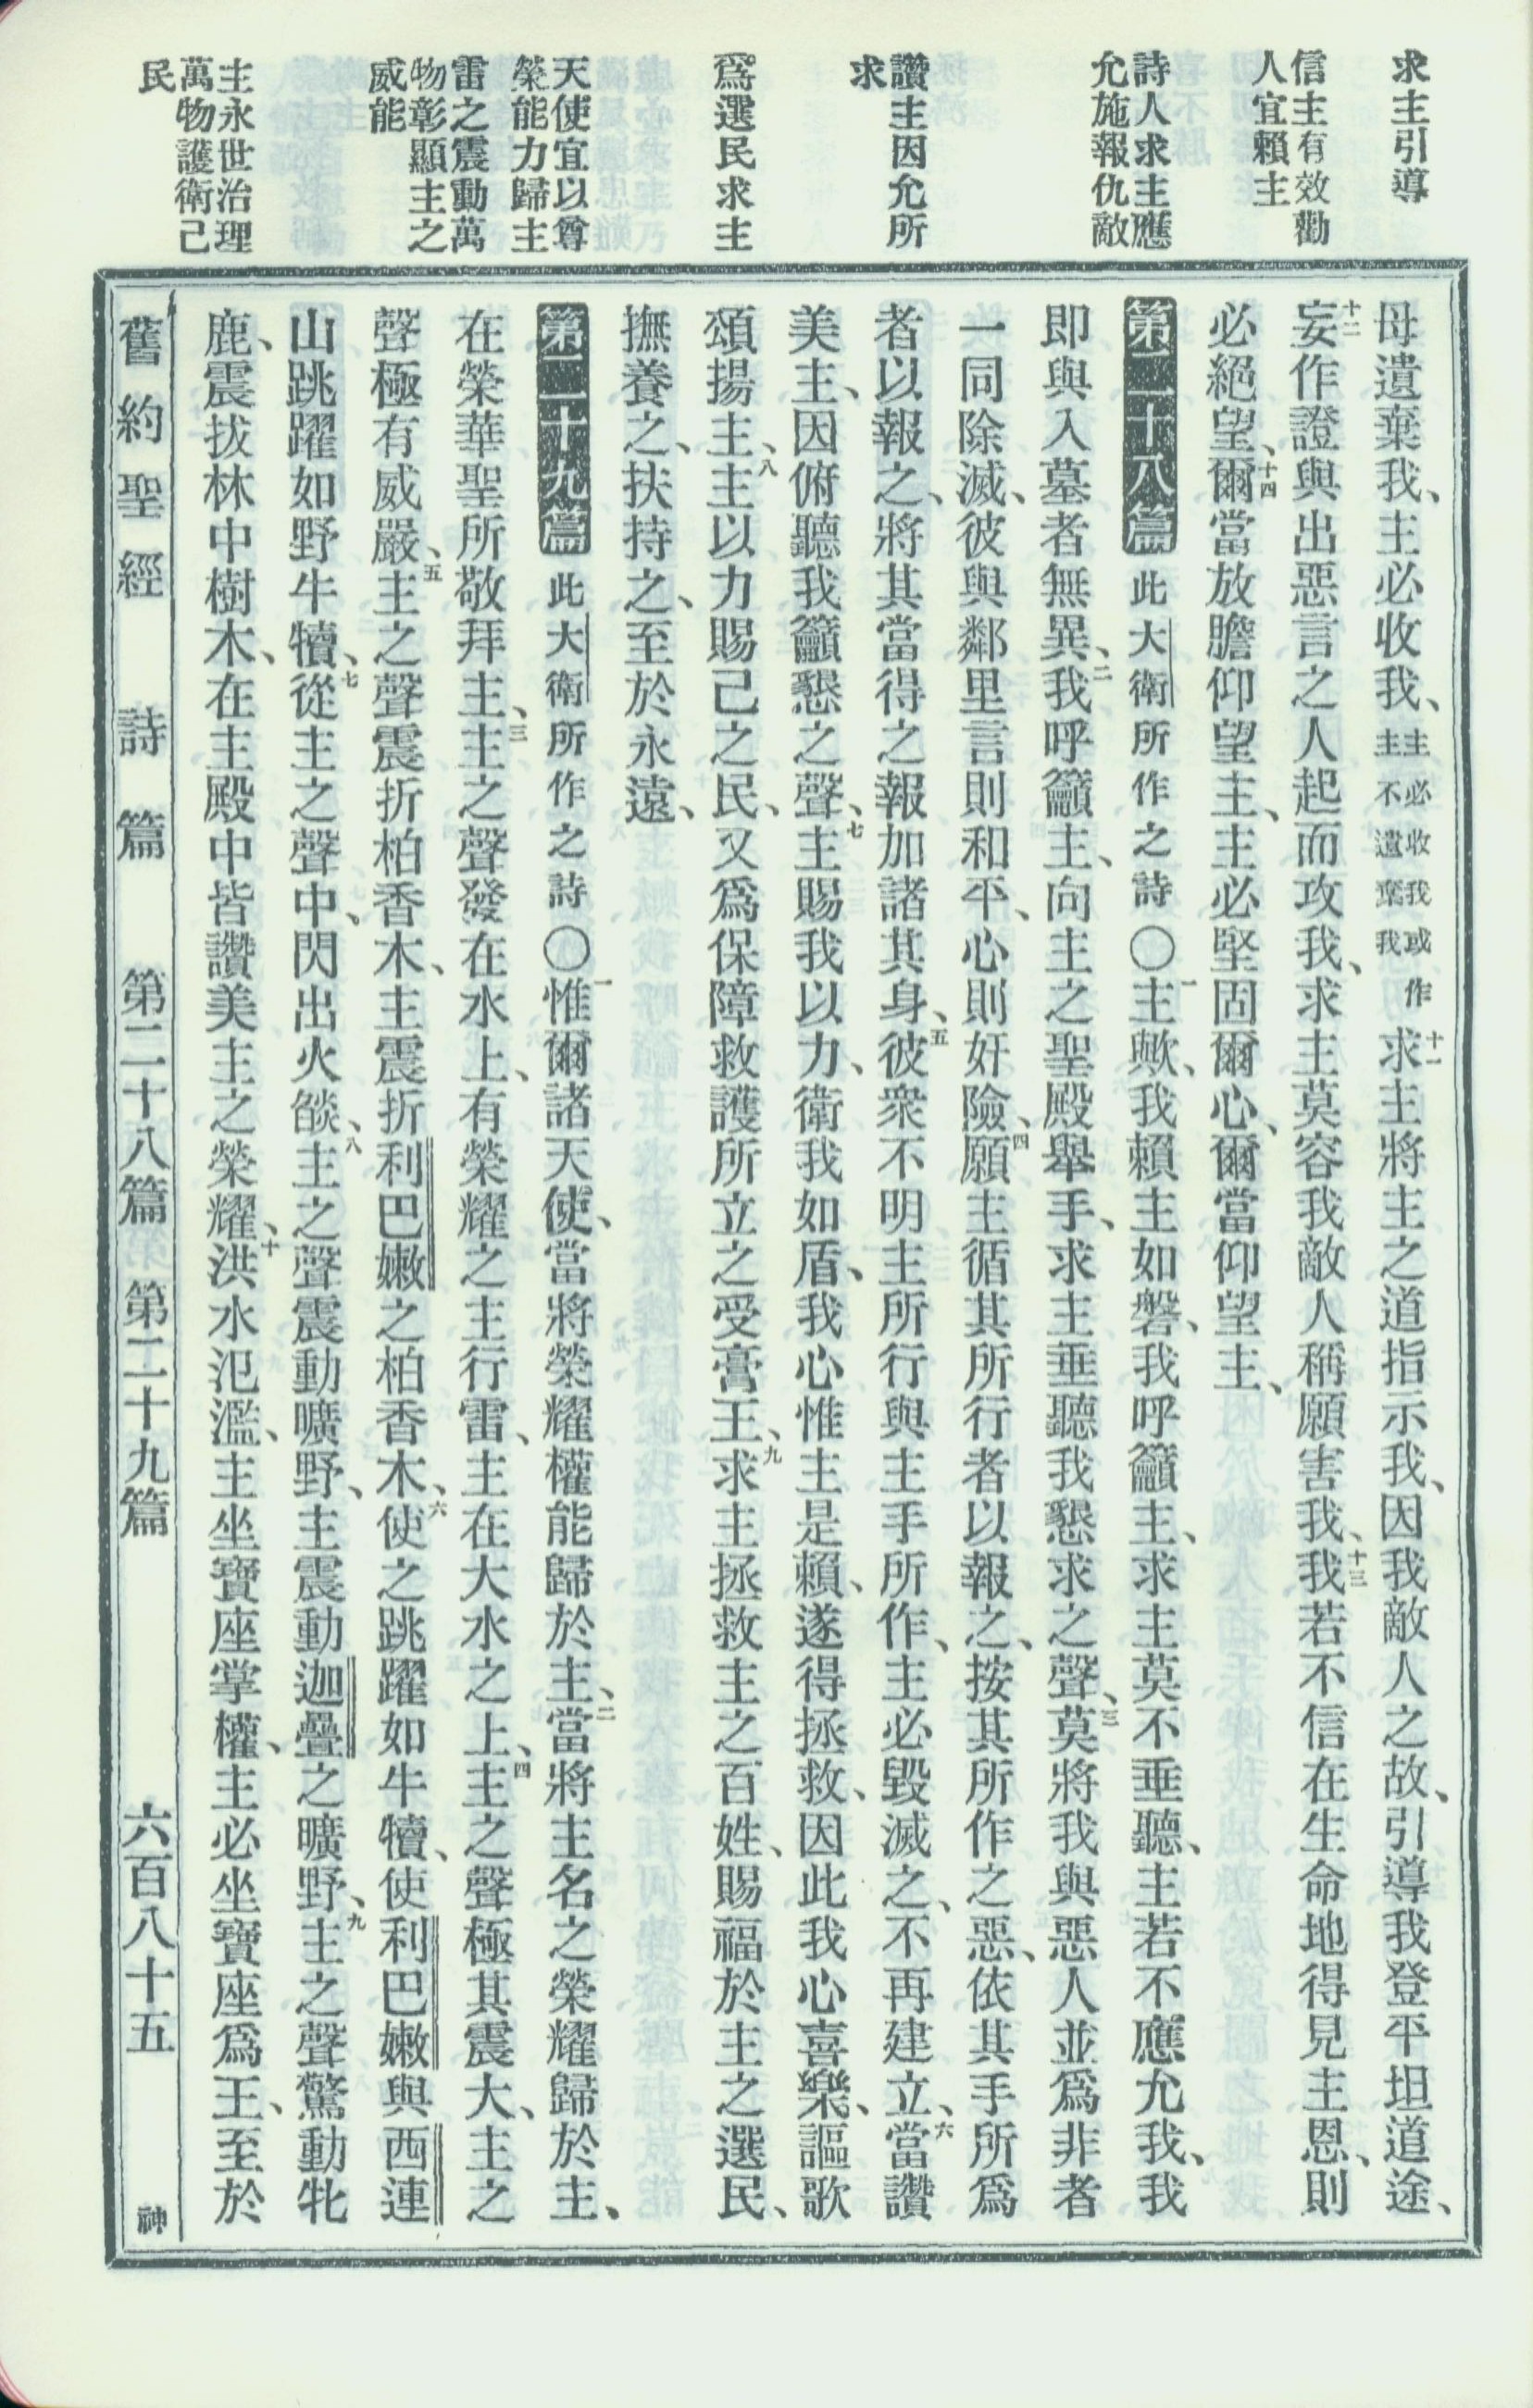 求主引導
信主有效勸
人宜賴主
詩人求主應
允施報仇敵
讚主因允所
求
爲選民求主
天使宜以尊
榮能力歸主
雷之震動萬
物彰顯主之
威能
主永世治理
萬物護衛己
民
母遺棄我、主必收我、主必收我或作主不遺棄我十一求主將主之道指示我、因我敵人之故、引導我登平坦道途、
十二妄作證與出惡言之人起而攻我、求主莫容我敵人稱願害我、十三我若不信在生命地得見主恩、則
必絕望、十四爾當放膽仰望主、主必堅固爾心、爾當仰望主、
第二十八篇 此大衛所作之詩〇一主歟、我賴主如磐、我呼籲主、求主莫不垂聽、主若不應允我、我
即與入墓者無異、二我呼籲主、向主之聖殿舉手、求主垂聽我懇求之聲、三莫將我與惡人並爲非者
一同除滅、彼與鄰里言則和平、心則奸險、四願主循其所行者以報之、按其所作之惡、依其手所爲
者以報之、將其當得之報加諸其身、五彼衆不明主所行與主手所作、主必毀滅之、不再建立、六當讚
美主、因俯聽我籲懇之聲、七主賜我以力、衛我如盾、我心惟主是賴、遂得拯救、因此我心喜樂、謳歌
頌揚主、八主以力賜己之民、又爲保障救護所立之受膏王、九求主拯救主之百姓、賜福於主之選民、
撫養之、扶持之、至於永遠、
第二十九篇 此大衛所作之詩〇一惟爾諸天使、當將榮耀權能歸於主、二當將主名之榮耀歸於主、
在榮華聖所敬拜主、三主之聲發在水上、有榮耀之主行雷、主在大水之上、四主之聲極其震大、主之
聲極有威嚴、五主之聲震折柏香木、主震折利巴嫩之柏香木、六使之跳躍如牛犢、使利巴嫩與西連
山跳躍如野牛犢、七從主之聲中、閃出火燄、八主之聲震動曠野、主震動迦疊之曠野、九主之聲驚動牝
鹿、震拔林中樹木、在主殿中皆讚美主之榮耀、十洪水氾濫、主坐寶座掌權、主必坐寶座爲王、至於
舊約聖經 詩篇 第二十八篇 第二十九篇 六百八十五 神